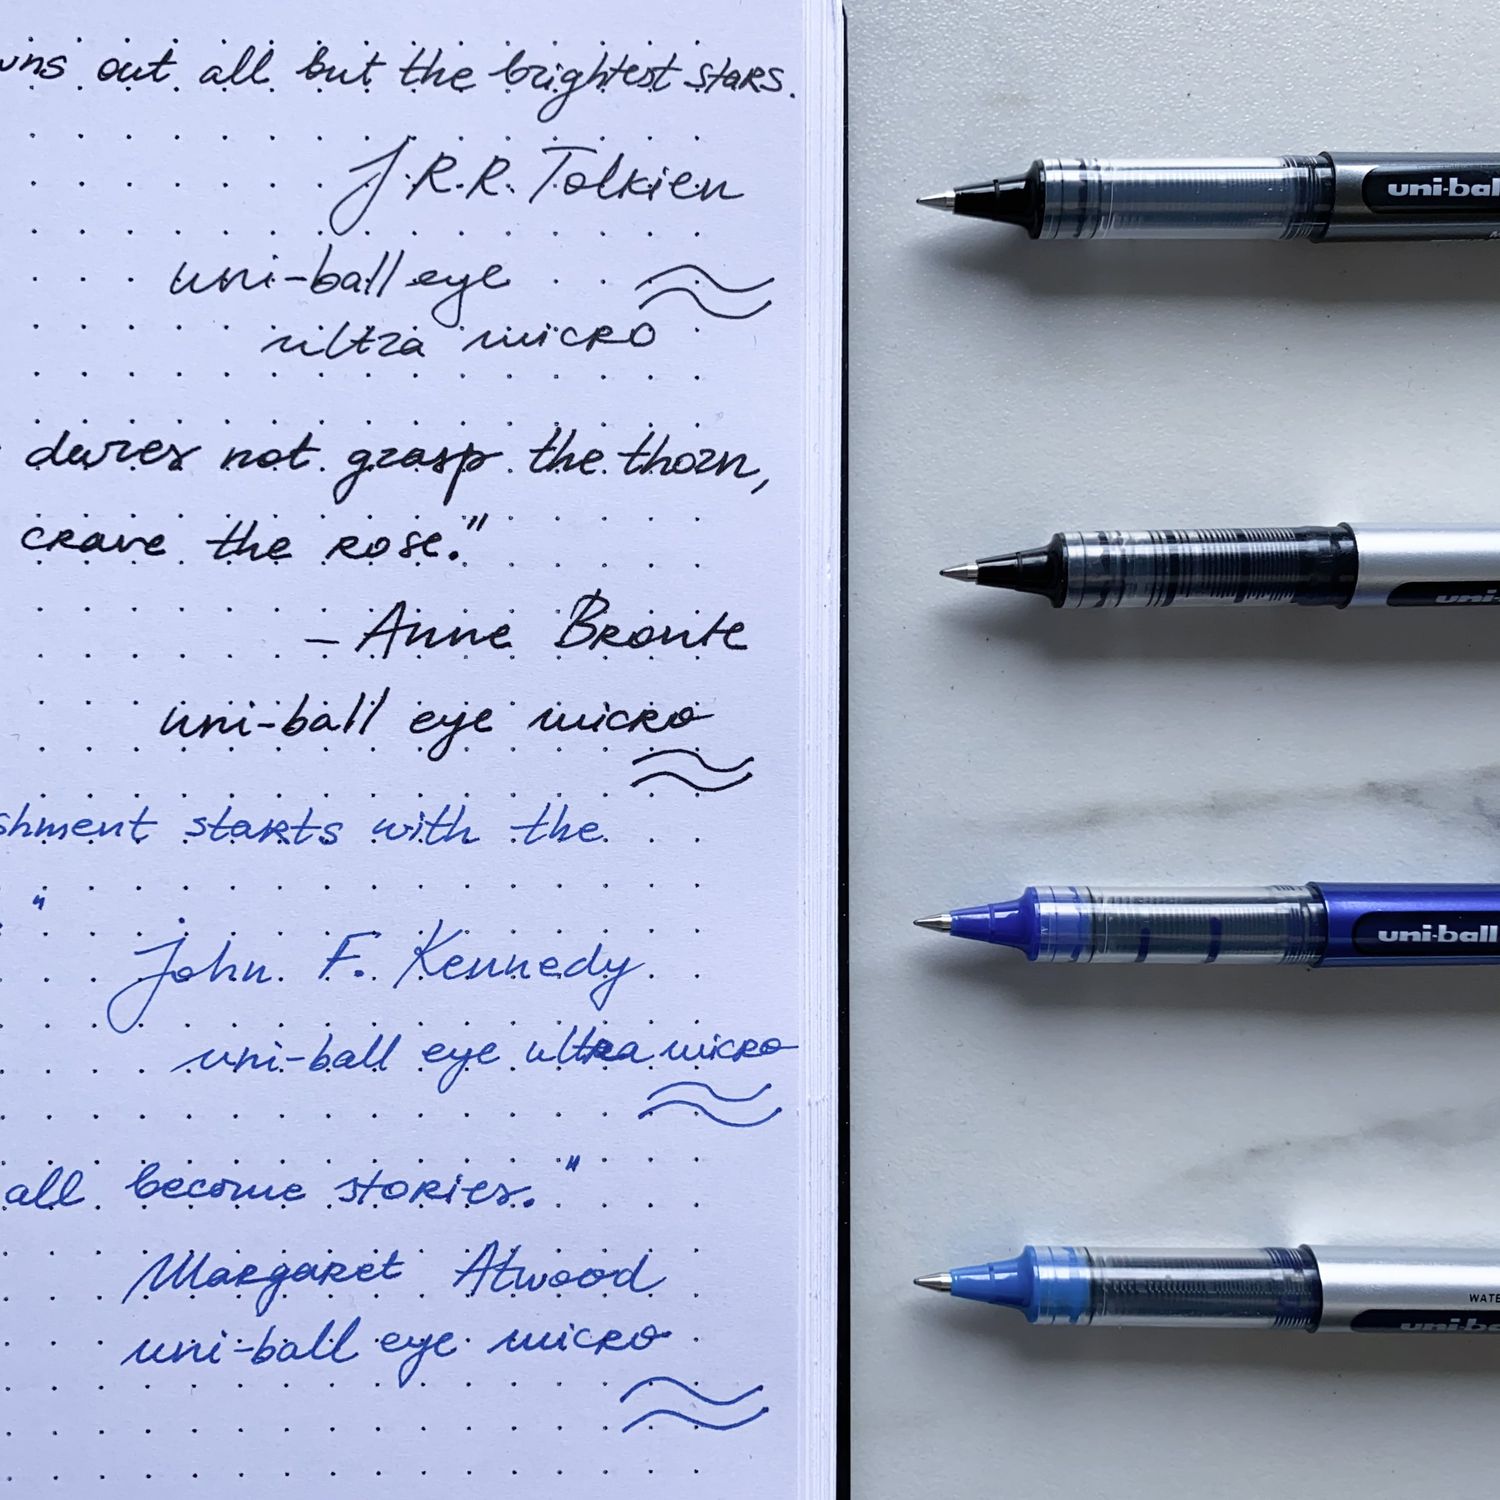 out all but the brightest stars.
J.R.R. Tolkien
uni-ball eye
ultra micro
dares not grasp the thorn,
crave the rose."
- Anne Bronte
uni-ball eye micro
shment starts with the
"
John F. Kennedy
uni-ball eye ultra micro
all become stories."
Margaret Atwood
uni-ball eye micro
uni-bal
uni-
uni-ball
WATE
uni-ba